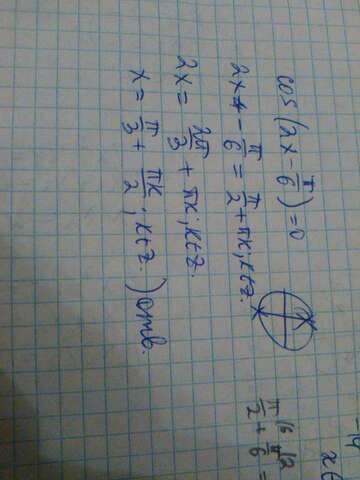 cos(2x - π/6) = 0
2x - π/6 = π/2 + πk; k∈z.
2x = 2π/3 + πk; k∈z.
x = π/3 + πk/2; k∈z. ) отв.
π/2 + π/6 =